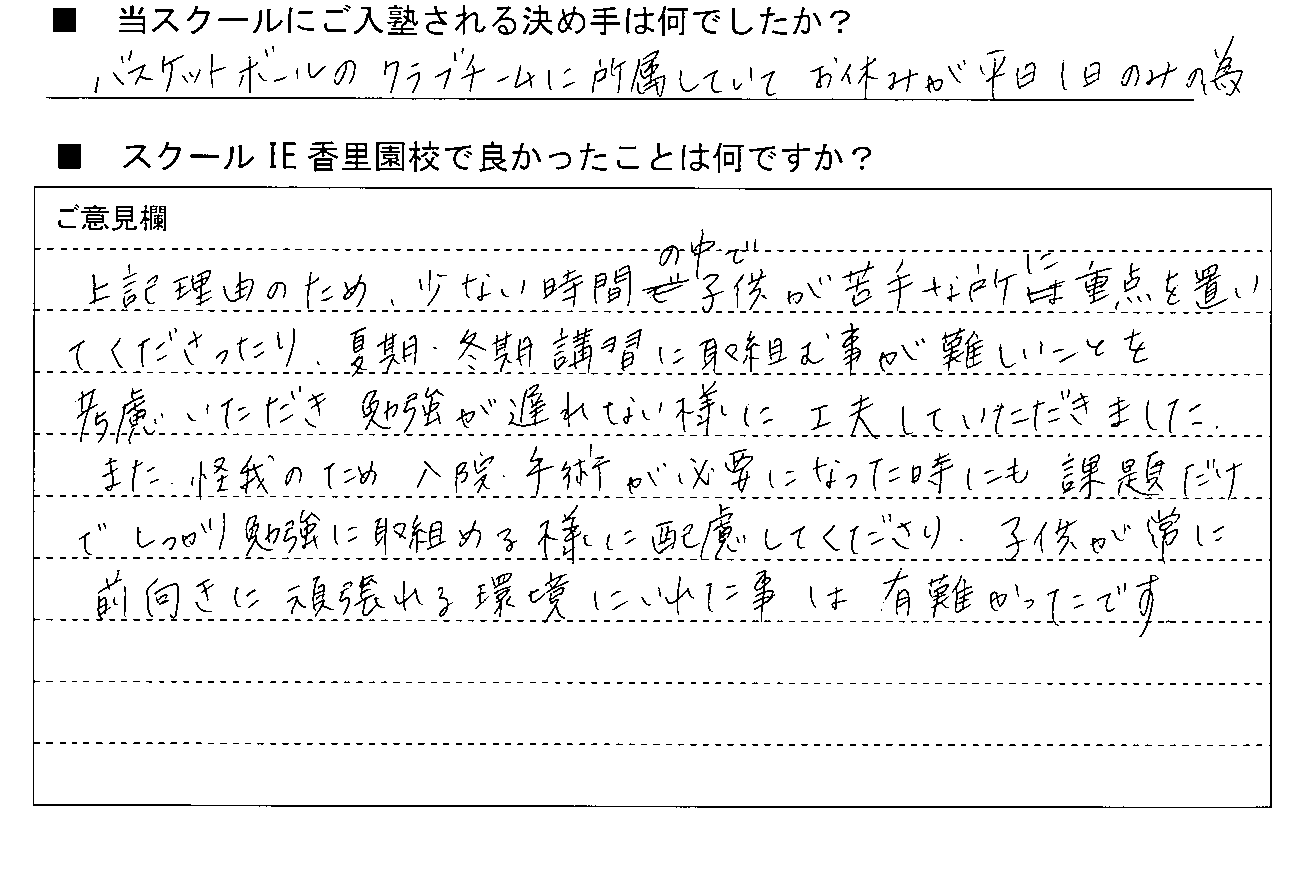 ■ 当スクールにご入塾される決め手は何でしたか？
バスケットボールのクラブチームに所属していて お休みが平日1日のみの為
■ スクールIE香里園校で良かったことは何ですか？
ご意見欄
上記理由のため、少ない時間の中で子供が苦手な所に重点を置い
てくださったり、夏期・冬期講習に取組む事が難しいことを
考慮いただき 勉強が遅れない様に 工夫していただきました。
また、怪我のため 入院・手術が必要になった時にも 課題だけ
でしっかり勉強に取組める様に配慮してくださり、子供が常に
前向きに頑張れる環境にいれた事は 有難かったです